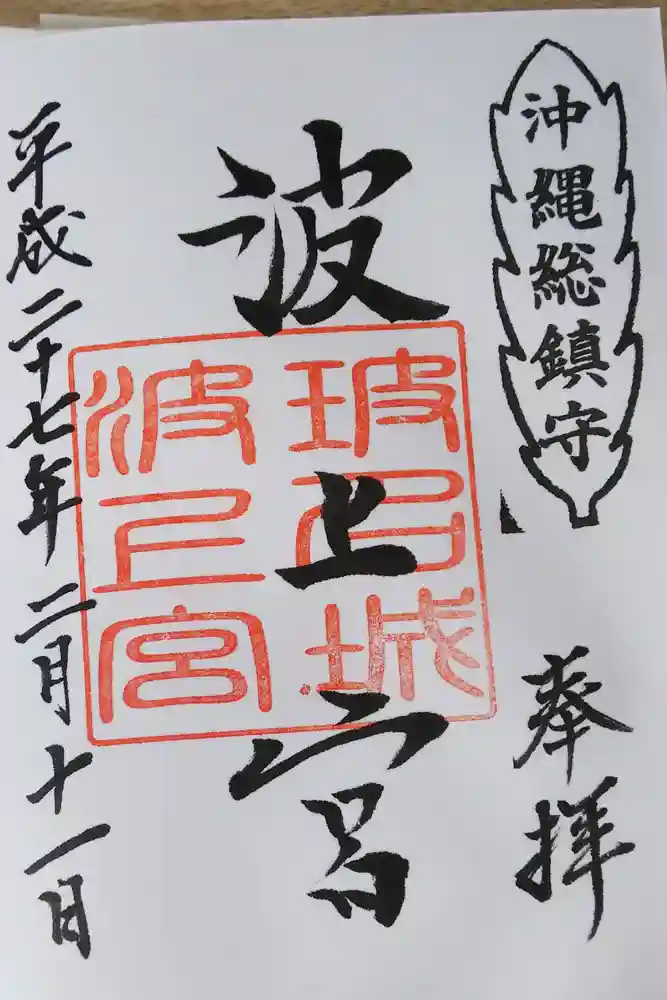 沖縄総鎮守
奉拝
波上宮
玻名城
波上宮
平成二十七年二月十一日